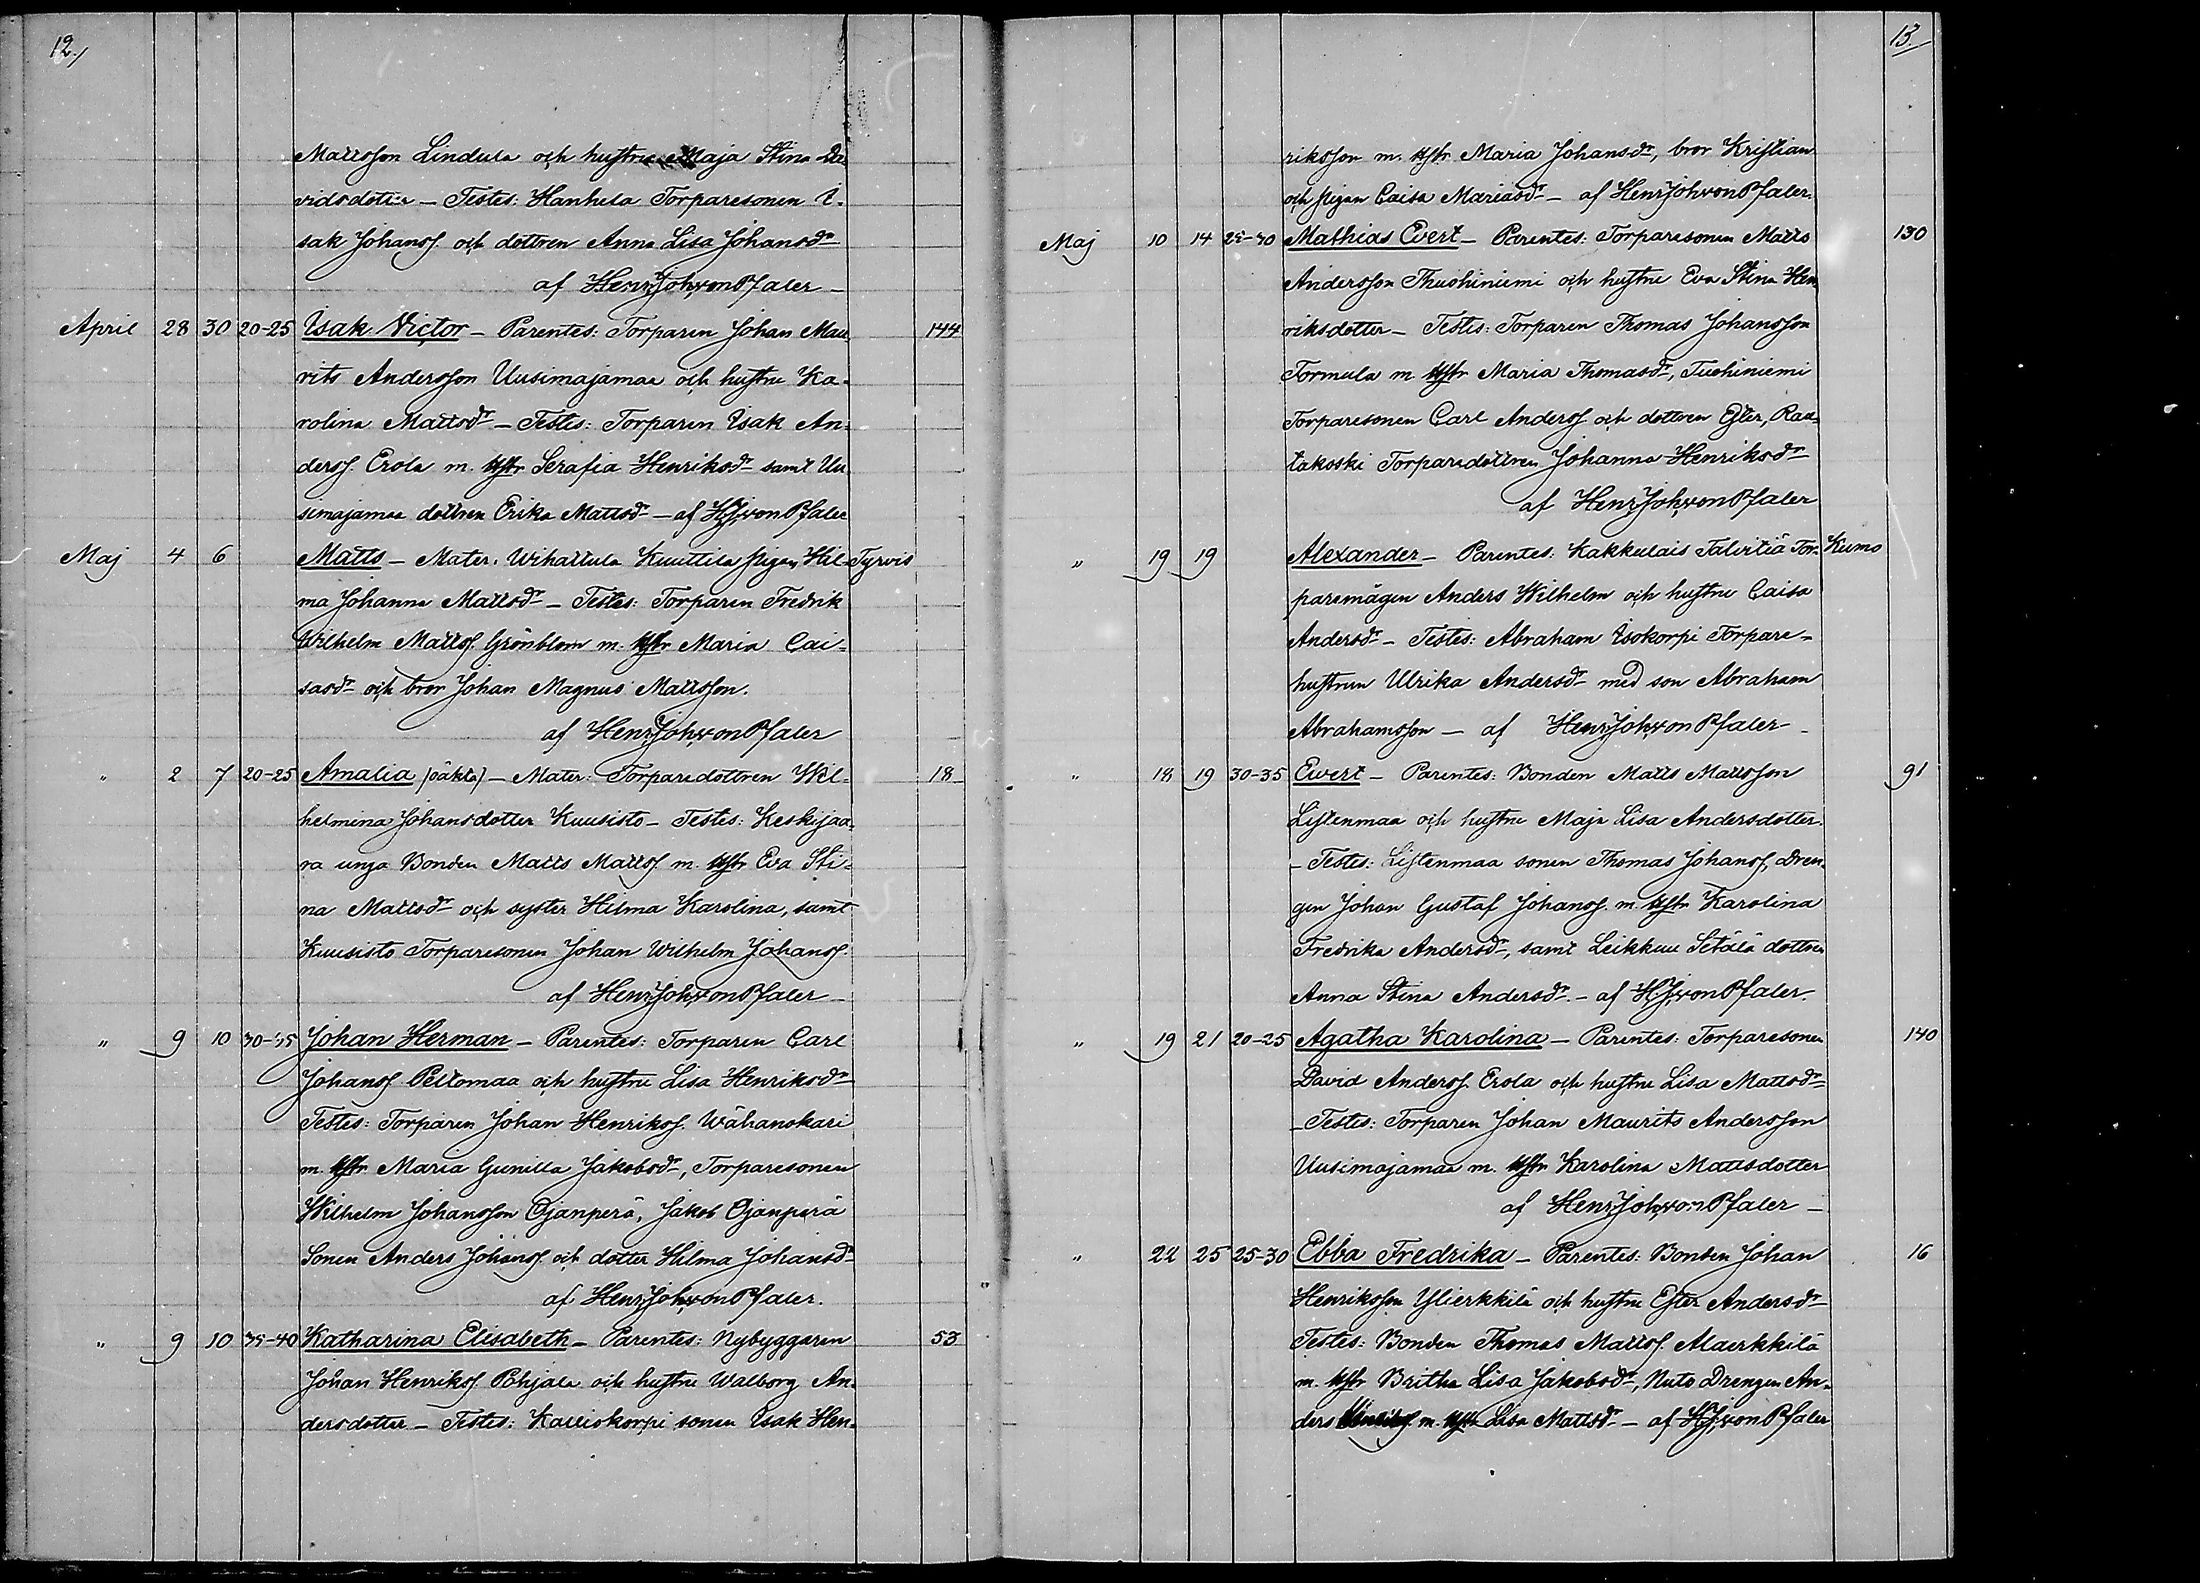 12./
Mattsson Lindula och hustrun Maja Stina Da-
vidsdotter – Testes: Hanhela Torparesonen I-
sak Johanss. och dottren Anna Lisa Johansdr
af Henr. Joh. von Pfaler –
April 28 30 20-25 Isak Victor – Parentes: Torparen Johan Mau- 144
rits Andersson Uusimajamaa och hustru Ka-
rolina Mattsdr – Testes: Torparen Isak An-
derss. Erola m. hstr Serafia Henriksdr samt Uu
simajamaa dottren Erika Mattsdr – af H. J. von Pfaler
Maj 4 6 Matts – Mater: Wihattula Kuuttila pigan Hil- Tyrvis
ma Johanna Mattsdr – Testes: Torparen Fredrik
Wilhelm Mattss. Grönblom m. hstr Maria Cai-
sasdr och bror Johan Magnus Mattsson.
af Henr. Joh. von Pfaler
" 2 7 20-25 Amalia (oäkta) – Mater: Torparedottren Wil- 18
helmina Johansdotter Kuusisto – Testes: Keskijaa-
ra unga Bonden Matts Mattss. m. hstr Eva Sti-
na Mattsdr och syster Hilma Karolina, samt
Kuusisto Torparesonen Johan Wilhelm Johanss.
af Henr. Joh. von Pfaler –
" 9 10 30-35 Johan Herman – Parentes: Torparen Carl
Johanss. Peltomaa och hustru Lisa Henriksdr –
Testes: Torparen Johan Henrikss. Wähanskari
m. hstr Maria Gunilla Jakobsdr, Torparesonen
Wilhelm Johansson Ojanperä, Jakob Ojanperä
Sonen Anders Johanss. och dotter Hilma Johansdr
af Henr. Joh. von Pfaler.
" 9 10 35-40 Katharina Elisabeth – Parentes: Nybyggaren 53
Johan Henrikss. Pohjala och hustru Walborg An-
dersdotter – Testes: Kalliokorpi sonen Isak Hen-
13.
riksson m. hstr Maria Johansdr, bror Kristian
och pigan Caisa Mariasdr – af Henr. Joh. von Pfaler.
Maj 10 14 25-30 Mathias Evert – Parentes: Torparesonen Matts 130
Andersson Thuohiniemi och hustru Eva Stina Hen
riksdotter – Testes: Torparen Thomas Johansson
Tormula m. hstr Maria Thomasdr, Tuohiniemi
Torparesonen Carl Anderss. och dottren Ester, Rau-
takoski Torparedottren Johanna Henriksdr
af Henr. Joh. von Pfaler
" 19 19 Alexander – Parentes: Kakkulais Talvitiä Tor- Kumo
paremågen Anders Wilhelm och hustru Caisa
Andersdr – Testes: Abraham Isokorpi Torpare-
hustrun Ulrika Andersdr med son Abraham
Abrahamsson – af Henr. Joh. von Pfaler –
" 18 19 30-35 Evert – Parentes: Bonden Matts Mattsson 91
Listenmaa och hustru Maja Lisa Andersdotter.
– Testes: Listenmaa sonen Thomas Johanss, Dren-
gen Johan Gustaf Johanss. m. hstr Karolina
Fredrika Andersdr, samt Leikkuu Setälä dottren
Anna Stina Andersdr – af H. J. von Pfaler.
" 19 21 20-25 Agatha Karolina – Parentes: Torparesonen 140
David Anderss. Erola och hustru Lisa Mattsdr –
– Testes: Torparen Johan Maurits Andersson
Uusimajamaa m. hstr Karolina Mattsdotter
af Henr. Joh. von Pfaler –
" 22 25 25-30 Ebba Fredrika – Parentes: Bonden Johan 16
Henriksson Ylierkkilä och hustru Ester Andersdr –
Testes: Bonden Thomas Mattss. Alaerkkilä
m. hstr Britha Lisa Jakobsdr, Nuto Drengen An-
ders m. hstr Lisa Mattsdr – af H. J. von Pfaler